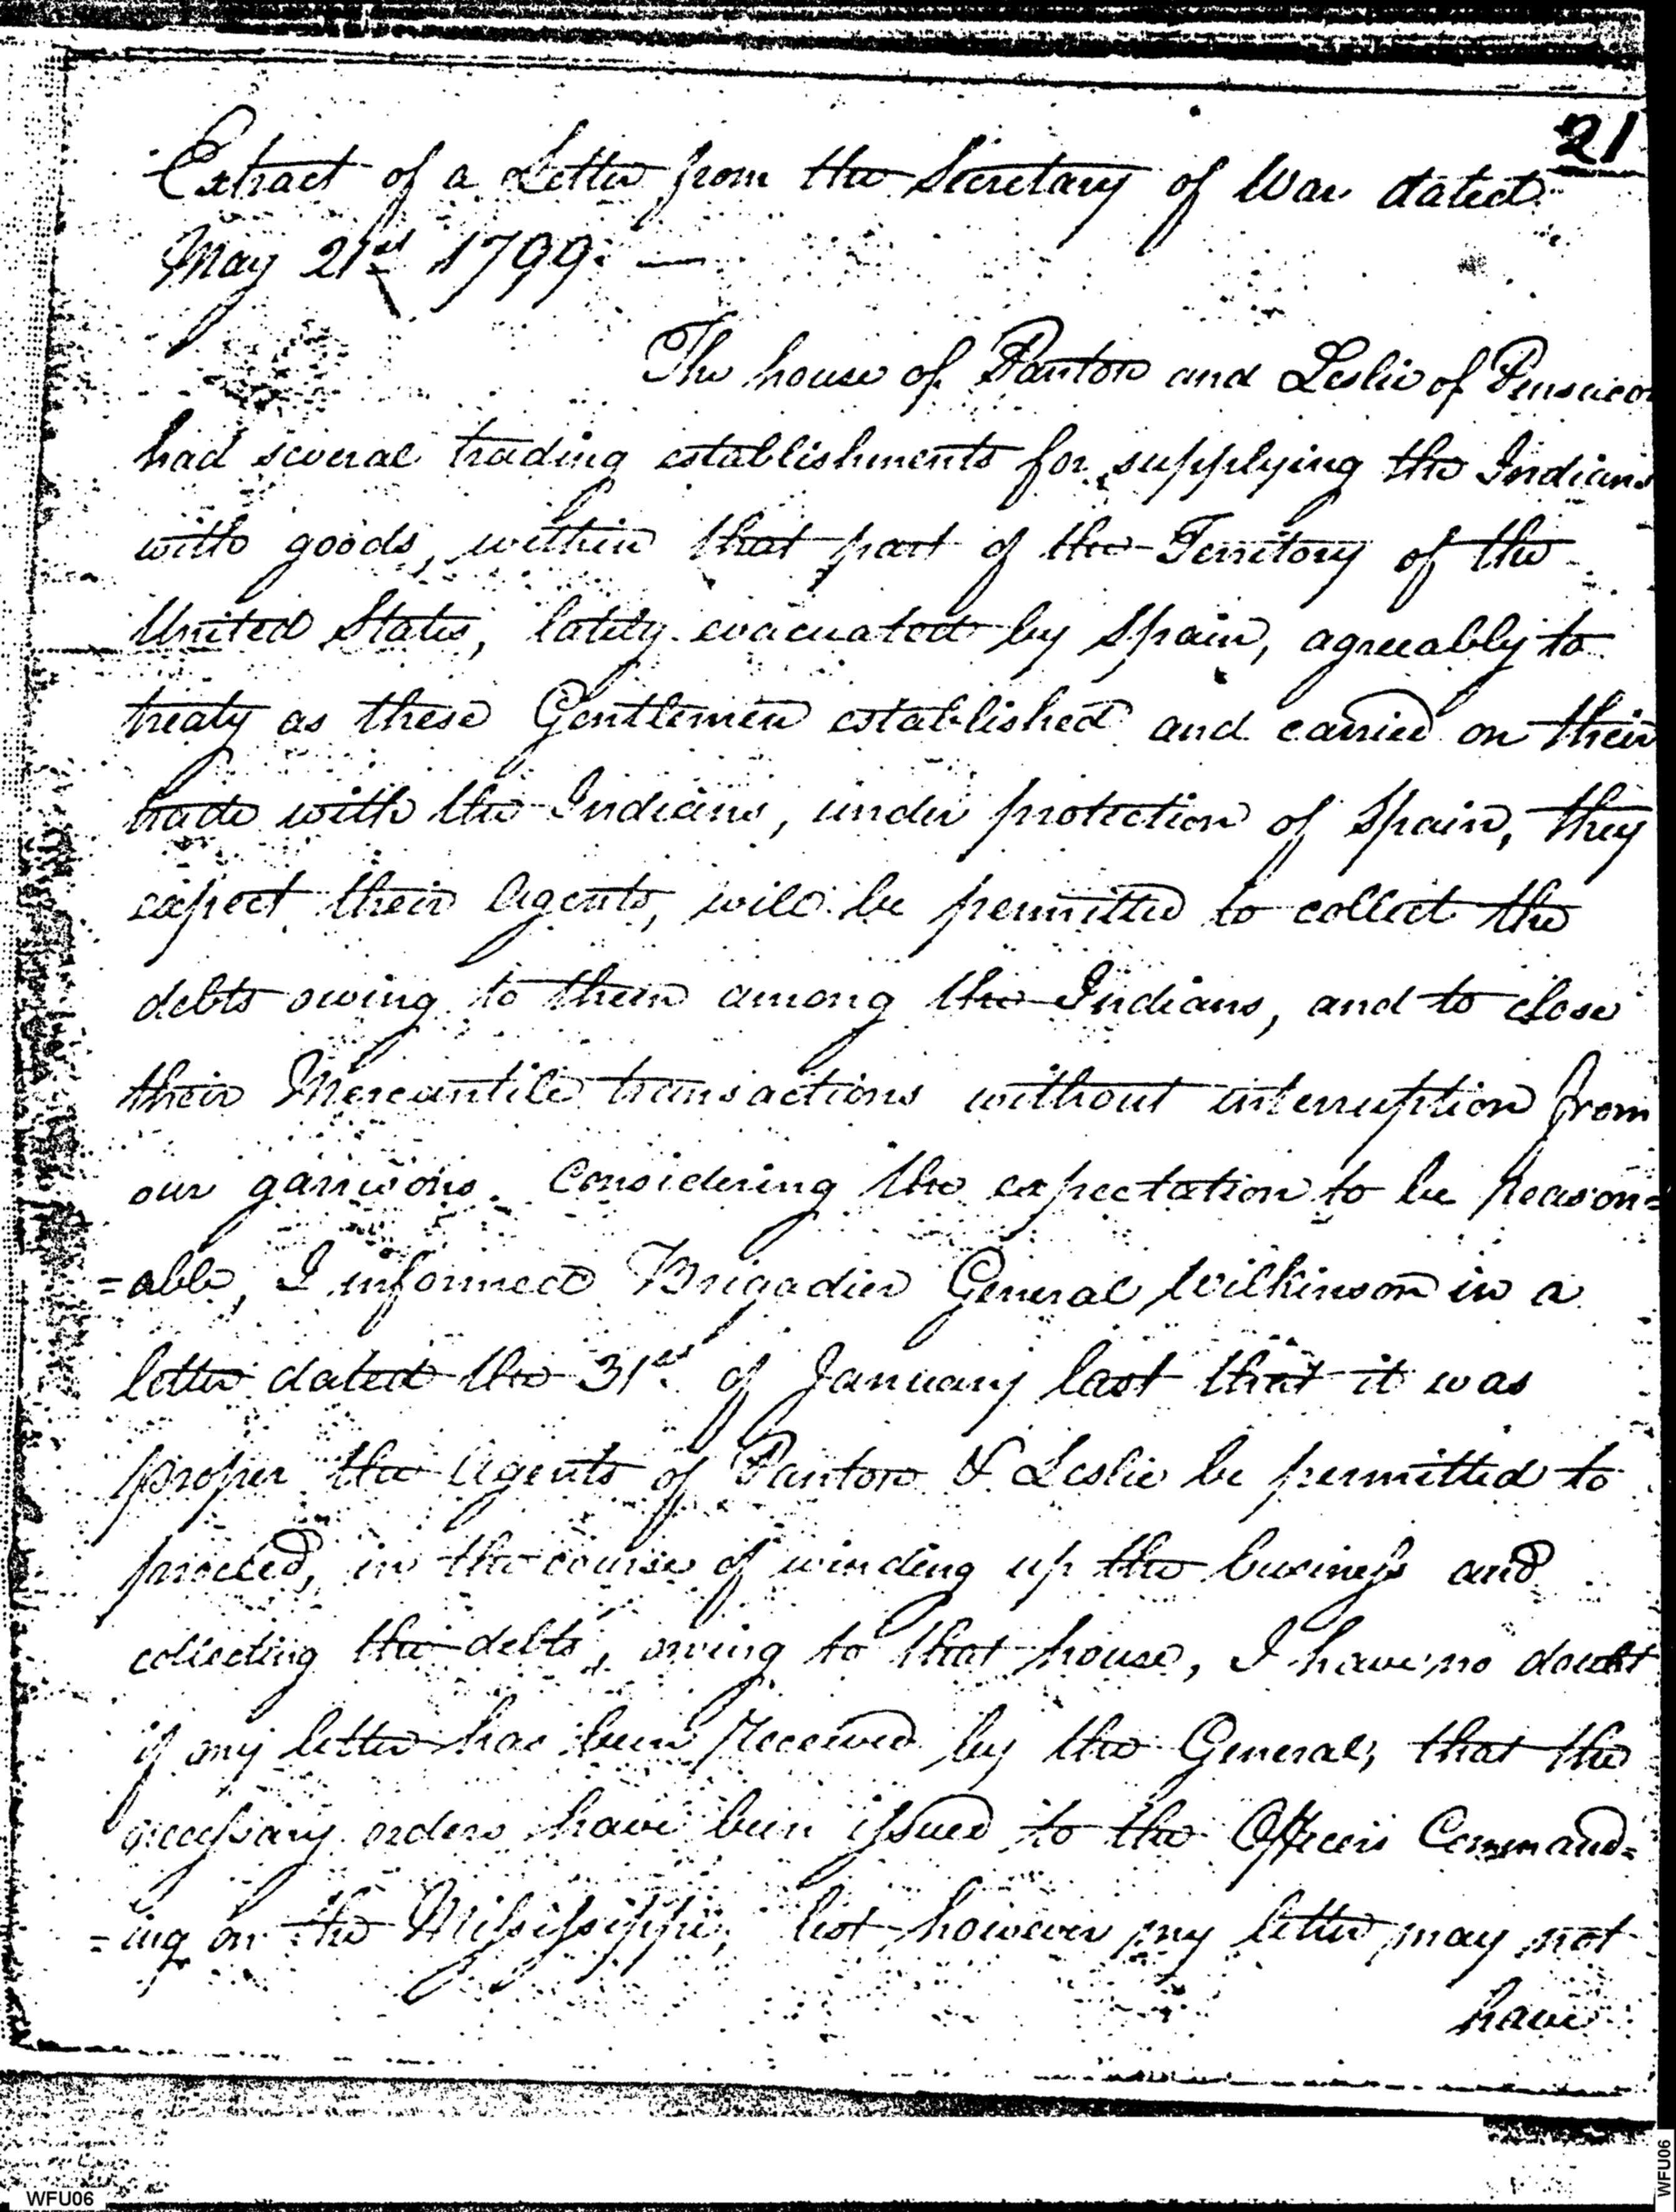 21
Extract of a Letter from the Secretary of War dated
May 21st 1799. —
The house of Panton and Leslie of Pensaco
had several trading establishments for supplying the Indians
with goods, within that part of the Territory of the
United States, lately evacuated by Spain, agreeably to
treaty as these Gentlemen established and carried on their
trade with the Indians, under protection of Spain, they
expect their Agents, will be permitted to collect the
debts owing to them among the Indians, and to close
their Mercantile transactions without interruption from
our garrisons. Considering the expectation to be reason=
=able, I informed Brigadier General Wilkinson in a
letter dated the 31st of January last that it was
proper the Agents of Panton & Leslie be permitted to
proceed, in the course of winding up the business and
collecting the debts, owing to that house, I have no doubt
if my letter has been received by the General, that the
necessary orders have been issued to the Officers Command=
=ing on the Mississippi, lest however my letter may not
have
WFU06
WFU06